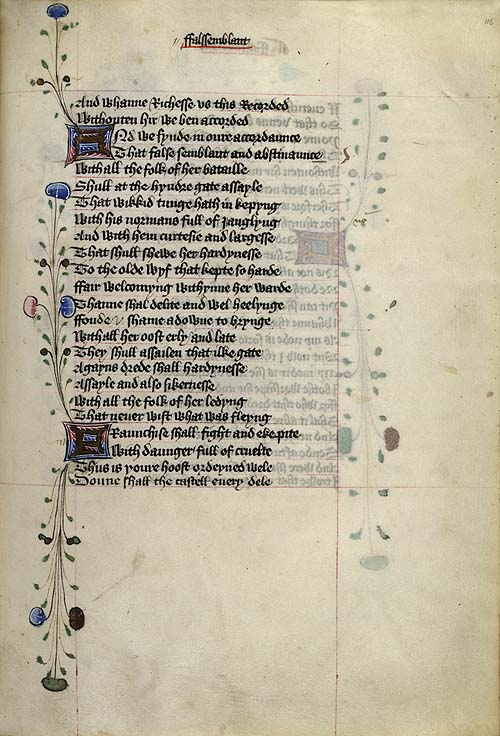 ffalssemblant
And whanne Richesse vs this Recorded
Withouten hir we ben accorded
And we fynde in oure accordaunce
That false semblant and abstinaunce
With all the folk of her bataille
Shull at the hyndre gate assayle
That wikkid tunge hath in kepyng
With his normans full of Janglyng
And with hem curtesie and largesse
That shull shewe her hardynesse
To the olde wyf that kepte so harde
ffair welcomyng withynne her warde
Thanne shal delite and wel heelynge
ffonde shame adowne to brynge
With all her oost erly and late
They shull assailen that ilke gate
Agayns drede shall hardynesse
Assayle and also sikernesse
With all the folk of her ledyng
That neuer wist what was fleyng
Fraunchise shall fight and eke pite
With daunger full of cruelte
Thus is youre hoost ordeyned wele
Doune shall the castell euery dele